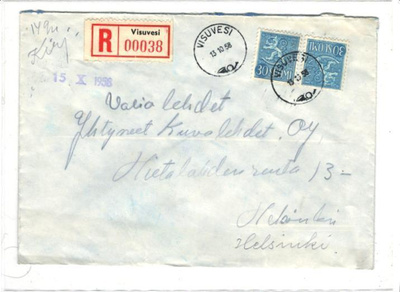 149n
Visuvesi
R 00038
VISUVESI
13.10.58
30 SUOMI
30 SUOMI
15. X. 1958
Varialehdet
Yhtyneet Kuvalehdet. Oy
Hietalahdenranta 13-
Helsinki
Helsinki.